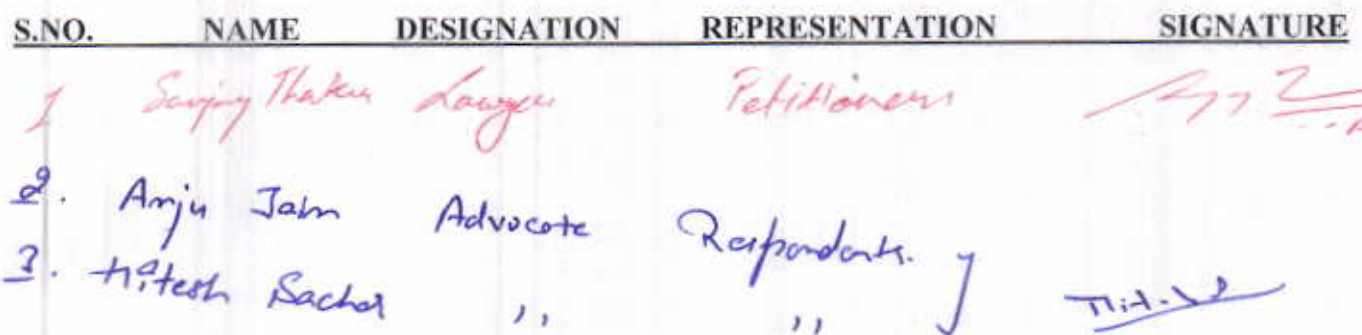 S.NO. NAME DESIGNATION REPRESENTATION SIGNATURE
1 Sanjay Thakur Lawyer Petitioners
2. Anju Jain Advocate Respondents.
3. Hitesh Sachar ,, ,,